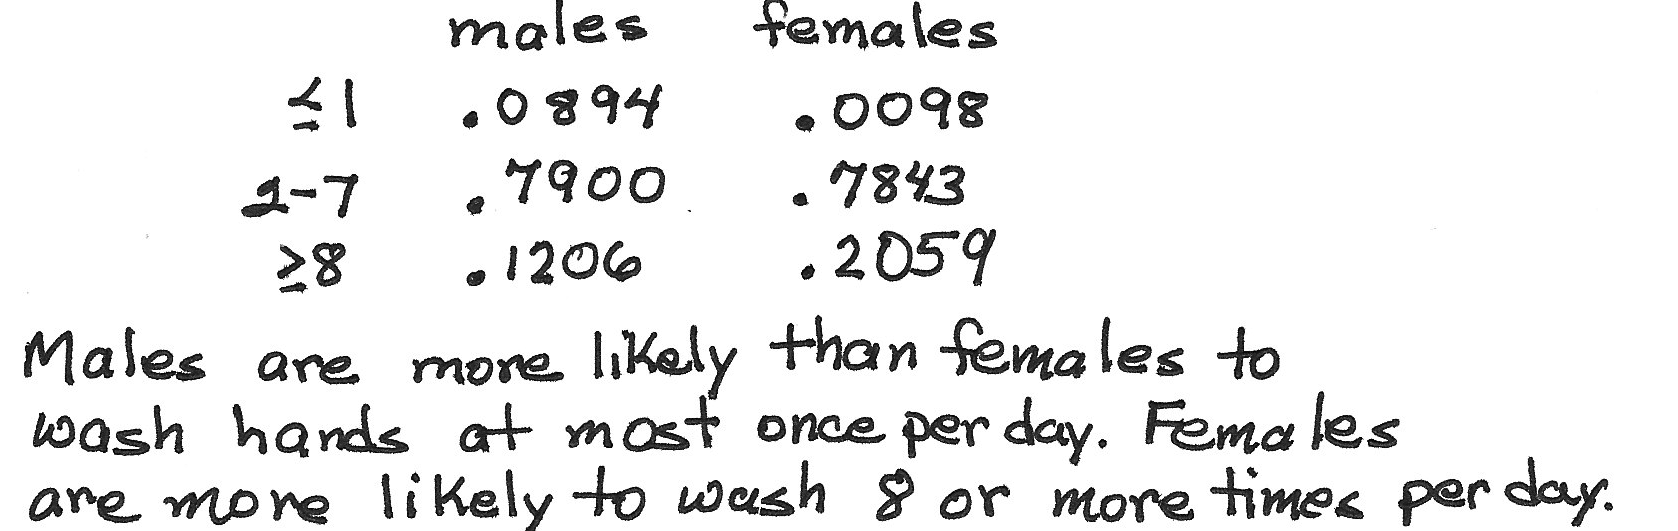 males females
≤1 .0894 .0098
2-7 .7900 .7843
≥8 .1206 .2059
Males are more likely than females to
wash hands at most once per day. Females
are more likely to wash 8 or more times per day.